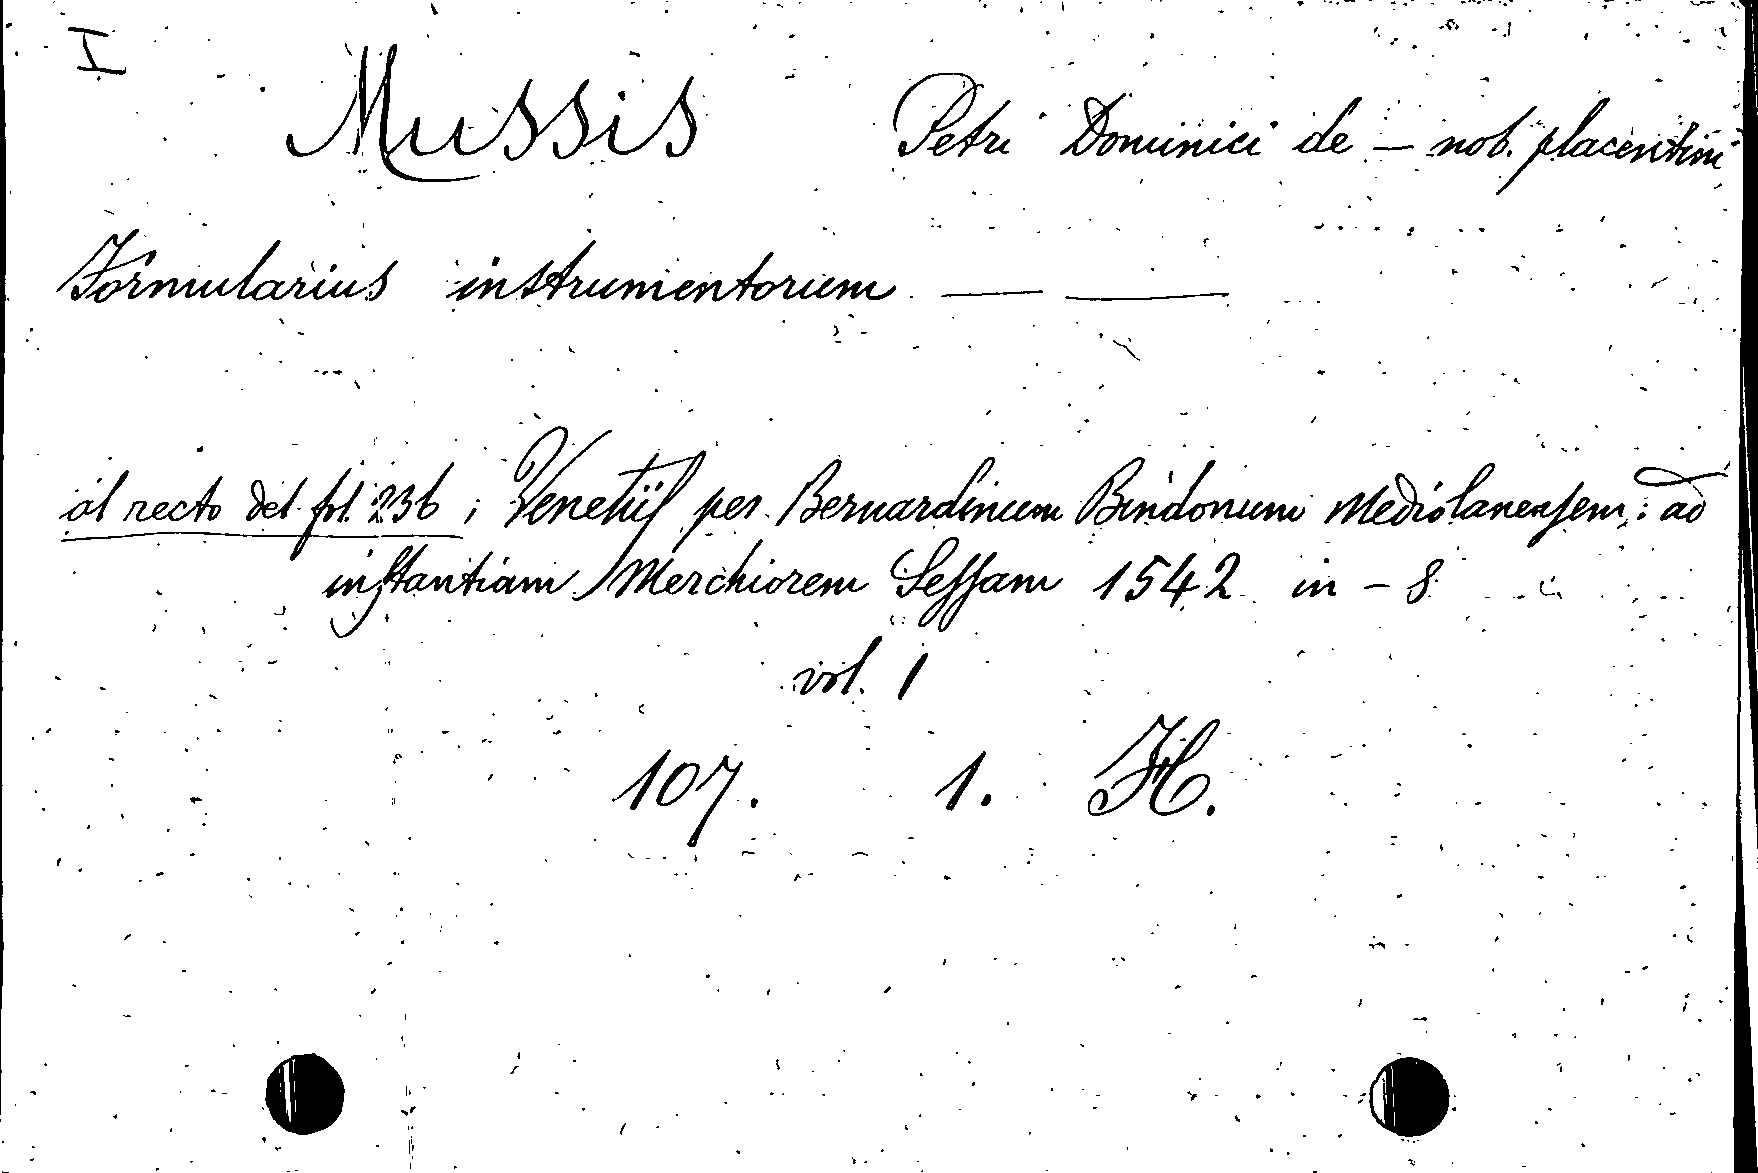 I
Mussis Petri Dominici de — nob. placentini
Formularius instrumentorum — —
al recto del fol. 236; Venetiis per Bernardinum Bindonum Mediolanensem: ad
instantiam Merchiorem Sessam 1542 in - 8
vol. 1
107. 1. H.